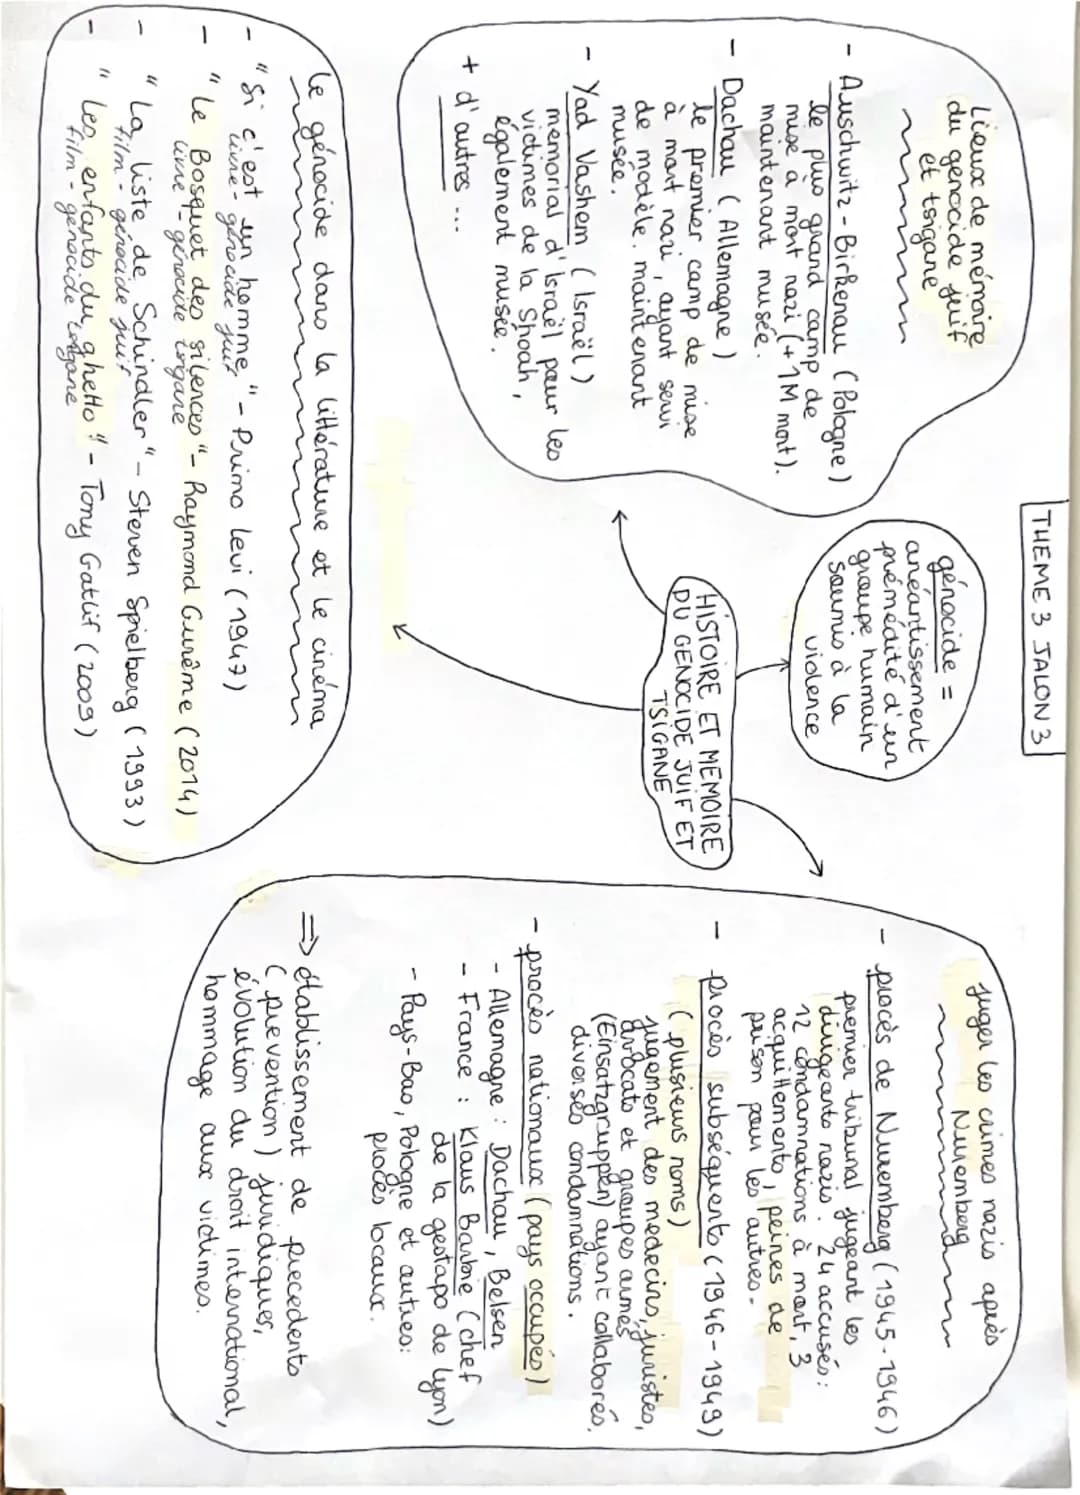 THEME 3 JALON 3
génocide =
anéantissement
prémédité d'un
groupe humain
soumis à la
violence
HISTOIRE ET MEMOIRE
DU GENOCIDE JUIF ET
TSIGANE
Lieux de mémoire
du genocide juif
et tsigane
- Auschwitz-Birkenau (Pologne)
le plus grand camp de
mise à mort nazi (+1M mort).
maintenant musée.
- Dachau (Allemagne)
le premier camp de mise
à mort nazi, ayant servi
de modèle. maintenant
musée.
- Yad Vashem (Israël)
memorial d'Israël pour les
victimes de la Shoah,
également musée.
+ d'autres ...
juger les crimes nazis après
Nuremberg
- procès de Nuremberg (1945-1946)
premier tribunal jugeant les
dirigeants nazis. 24 accusés:
12 condamnations à mort, 3
acquittements, peines de
prison pour les autres.
- procès subséquents (1946-1949)
(plusieurs noms)
jugement des medecins, juristes,
avocats et groupes armés
(Einsatzgruppen) ayant collaborés,
diverses condamnations.
- procès nationaux (pays occupés)
- Allemagne : Dachau, Belsen
- France : Klaus Barbie (chef
de la gestapo de Lyon)
- Pays-Bas, Pologne et autres:
procès locaux.
⇒ établissement de precedents
(prevention) juridiques,
évolution du droit international,
hommage aux victimes.
Le génocide dans la littérature et le cinéma
- "Si c'est un homme" - Primo Levi (1947)
livre - génocide juif
- "Le Bosquet des silences" - Raymond Gurême (2014)
livre - génocide tsigane
- "La liste de Schindler" - Steven Spielberg (1993)
film - génocide juif
- "Les enfants du ghetto" - Tony Gatlif (2009)
film - génocide tsigane